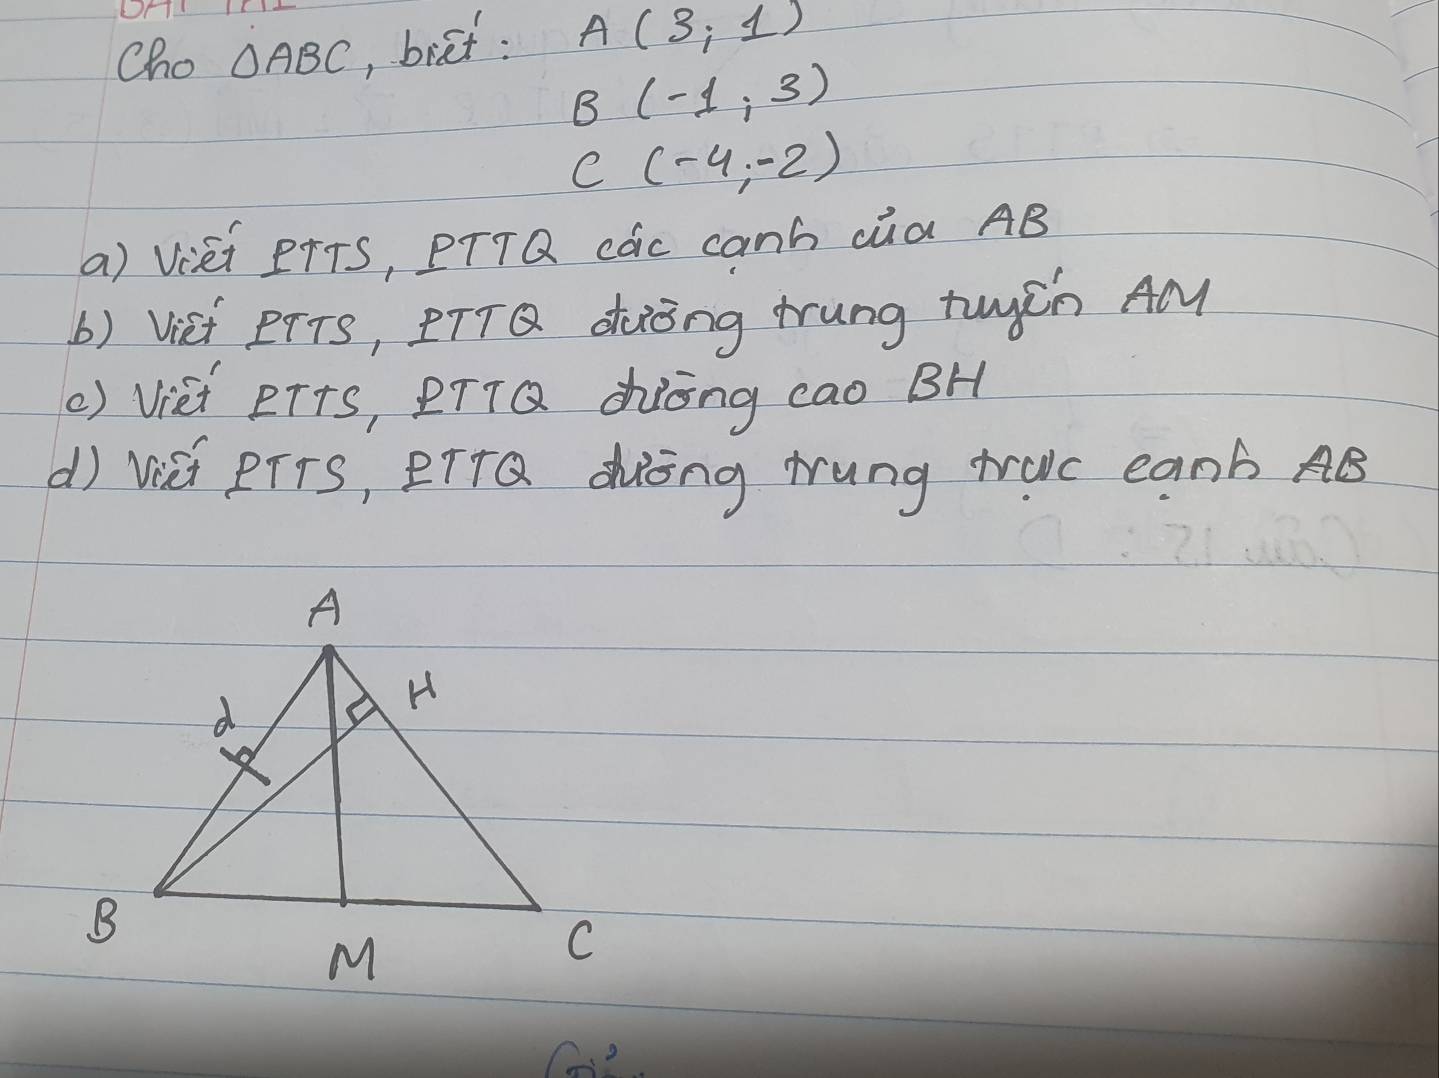 BÀI TẬP
Cho ΔABC, biết: A (3; 1)
B (-1; 3)
C (-4; -2)
a) Viết PTTS, PTTQ các cạnh của AB
b) Viết PTTS, PTTQ đường trung tuyến AM
c) Viết PTTS, PTTQ đường cao BH
d) Viết PTTS, PTTQ đường trung trực cạnh AB
A
H
d
B
M
C
Giải